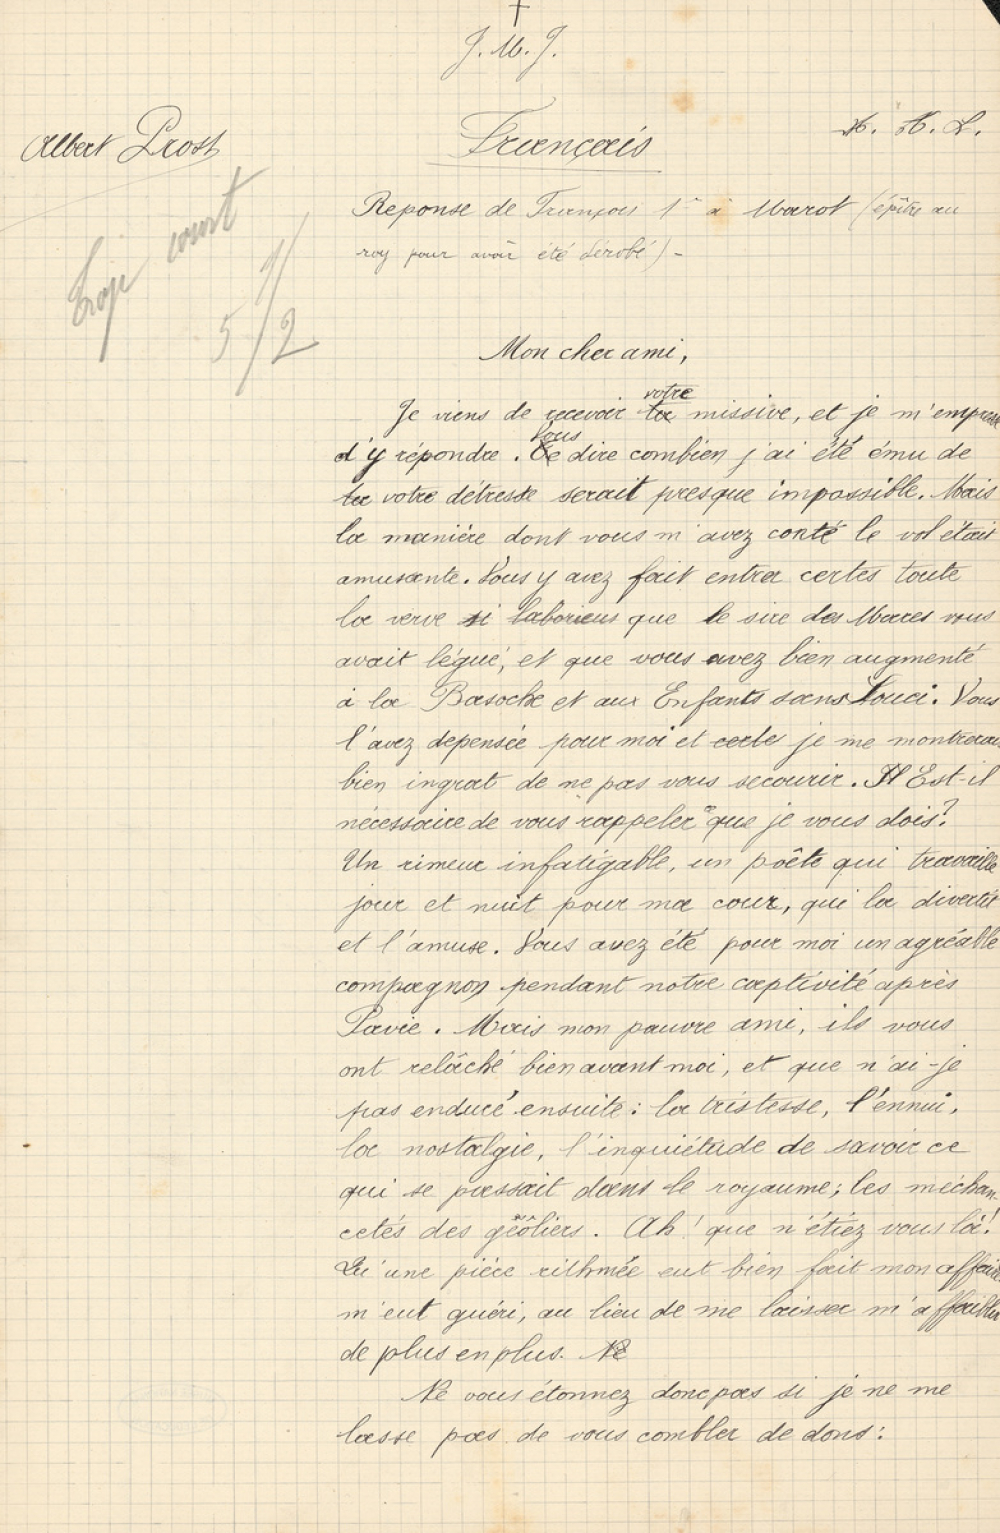 J. M. J.
Albert Prost
Français
H. H. L.
Trop court
5 1/2
Reponse de François 1er à Marot (épître au
roy pour avoir été dérobé) -
Mon cher ami,
Je viens de recevoir ta votre missive, et je m'empresse
d'y répondre. Te Vous dire combien j'ai été ému de
ta votre détresse serait presque impossible. Mais
la manière dont vous m'avez conté le vol était
amusante. Vous y avez fait entrer certes toute
la verve si laborieus que le sire des Mares vous
avait légué, et que vous avez bien augmenté
à la Basoche et aux Enfants sans Souci. Vous
l'avez depensée pour moi et certe je me montrerais
bien ingrat de ne pas vous secourir. Il Est-il
nécessaire de vous rappeler ce que je vous dois?
Un rimeur infatigable, un poête qui travaille
jour et nuit pour ma cour, qui la divertit
et l'amuse. Vous avez été pour moi un agréable
compagnon pendant notre captivité après
Pavie. Mais mon pauvre ami, ils vous
ont relâché bien avant moi, et que n'ai-je
pas enduré ensuite: la tristesse, l'ennui,
la nostalgie, l'inquiétude de savoir ce
qui se passait dans le royaume; les méchan-
cetés des geôliers. Ah! que n'étiez vous là!
Qu'une piéce rithmée eut bien fait mon affaire
m'eut guéri, au lieu de me laisser m'affaiblir
de plus en plus. Ne
Ne vous étonnez donc pas si je ne me
lasse pas de vous combler de dons: